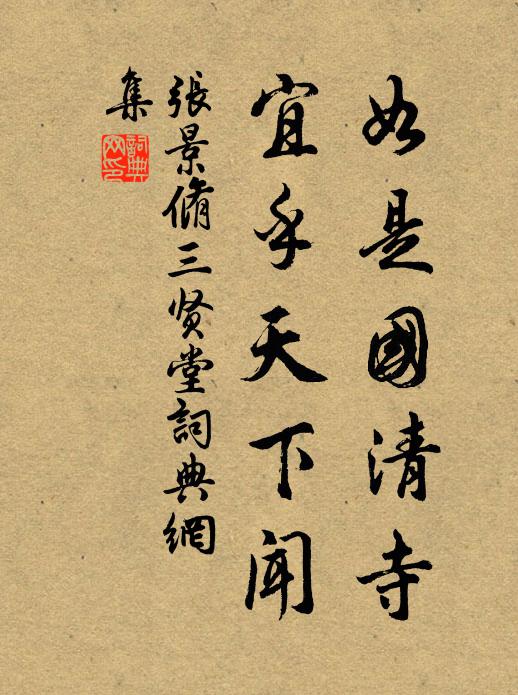 如是國清寺
宜乎天下聞
張景脩三贤堂詞典網
集
詞典网印